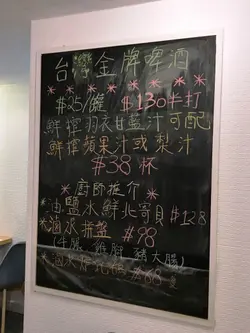 台灣金牌啤酒
$25/罐 $130半打
鮮搾羽衣甘藍汁可配
鮮搾蘋果汁或梨汁
$38 杯
* 廚師推介 *
*油鹽水鮮北寄貝 $128
*滷水拼盤 $98
(牛𦟌 豬大腸)
*滷水 $68